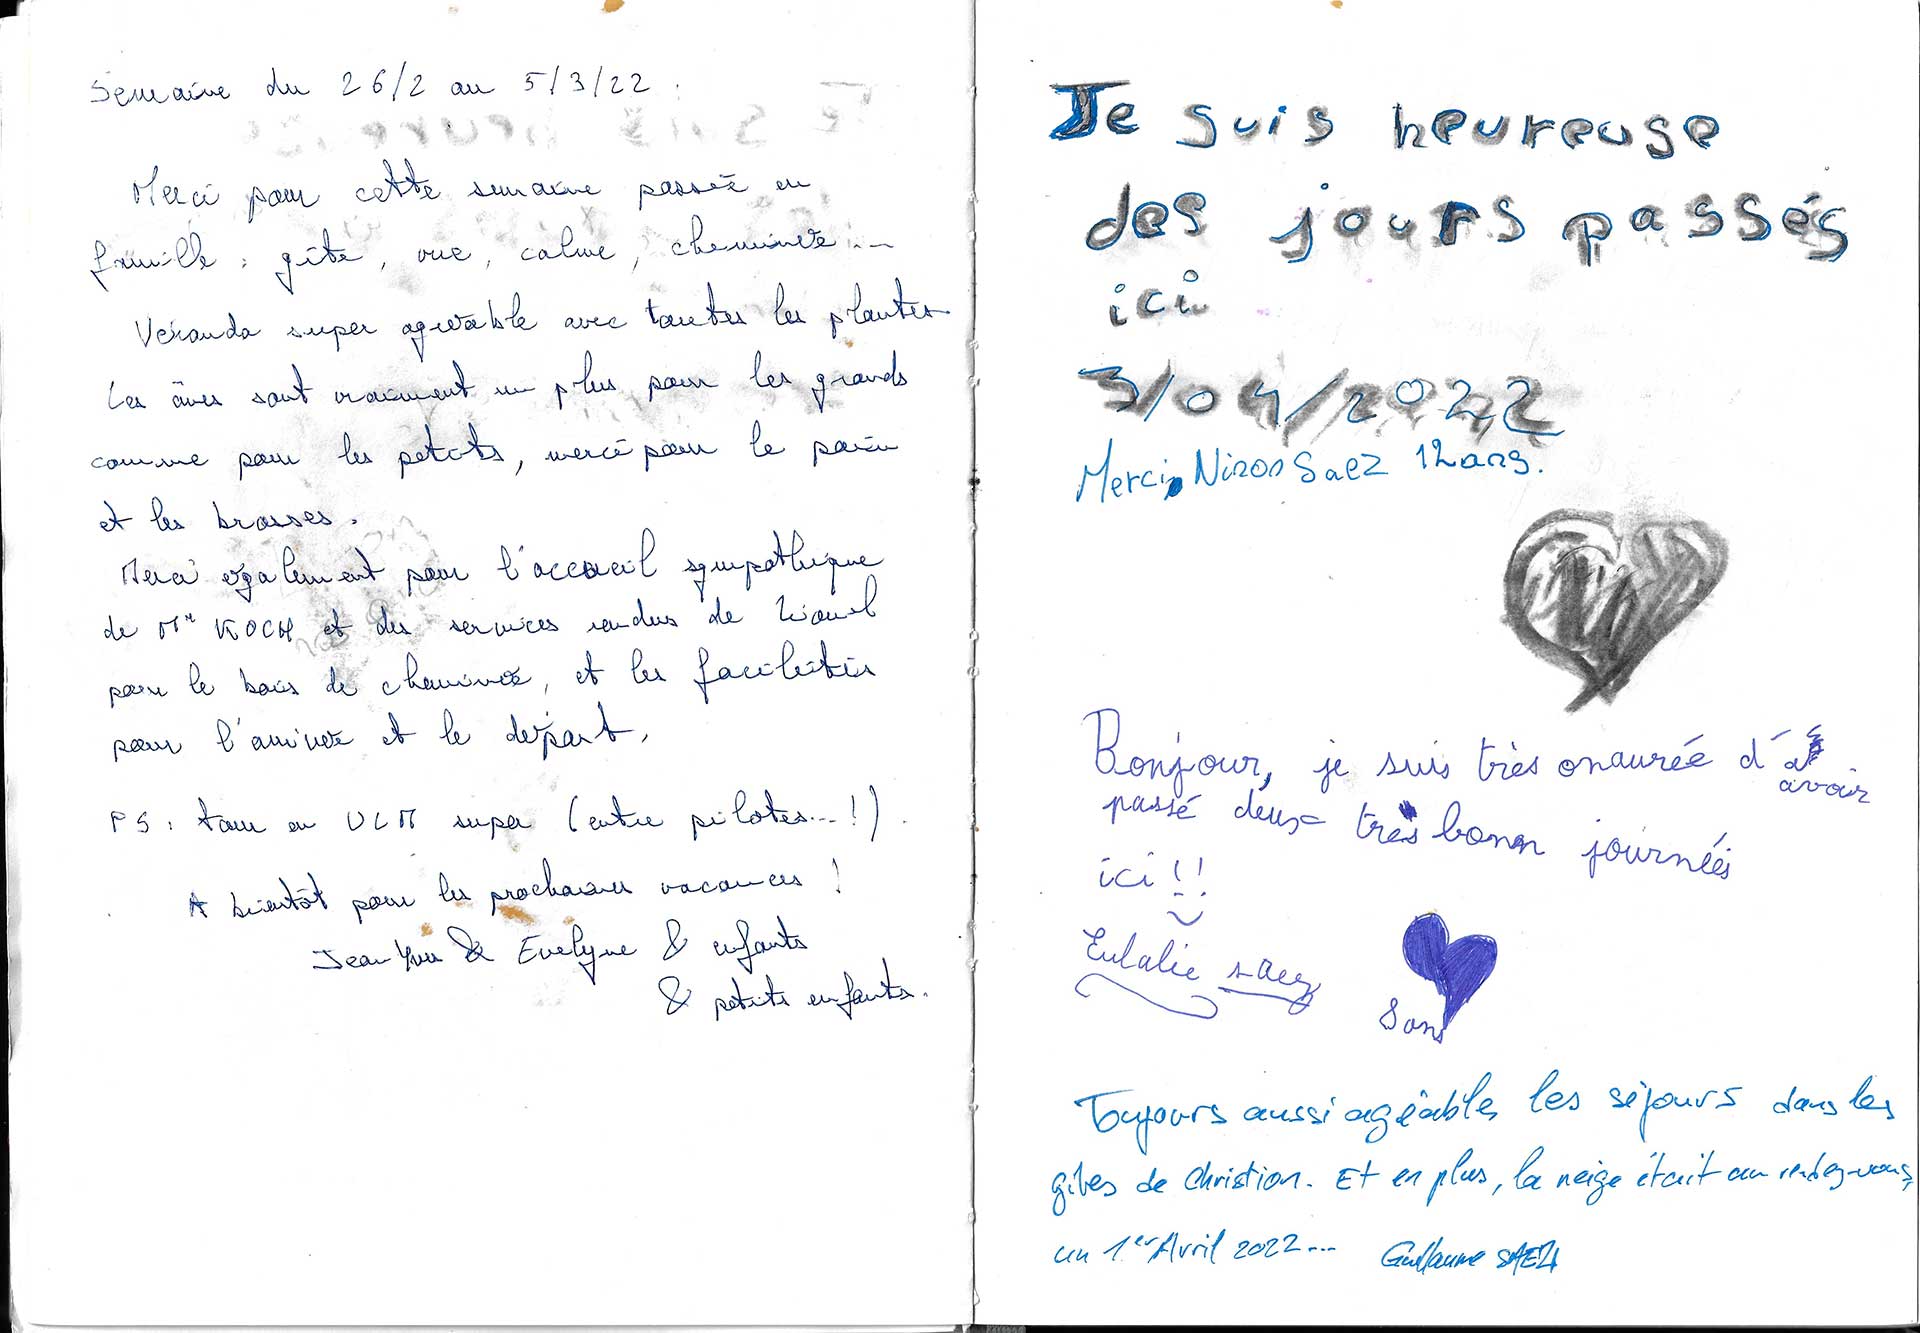 Semaine du 26/2 au 5/3/22.
Merci pour cette semaine passée en
famille : gîte, vue, calme, cheminée...
Véranda super agréable avec toutes les plantes
Les ânes sont vraiment un plus pour les grands
comme pour les petits, merci pour le pain
et les brosses.
Merci également pour l'accueil sympathique
de Mr KOCH et des services rendus de Lionel
pour le bois de cheminée, et les facilités
pour l'arrivée et le départ.
PS : tour en ULM super (entre pilotes...!).
A bientôt pour les prochaines vacances !
Jean Yves & Evelyne & enfants
& petits enfants.
Je suis heureuse
des jours passés
ici
3/04/2022
Merci, Ninon Saez 12 ans.
Bonjour, je suis très onaurée d'
avoir
passé deux très bonn journéés
ici !!
Eulalie saez
Toujours aussi agéables les séjours dans les
gîtes de Christian. Et en plus, la neige était au rendez-vous,
un 1er Avril 2022...
Guillaume SAEZ